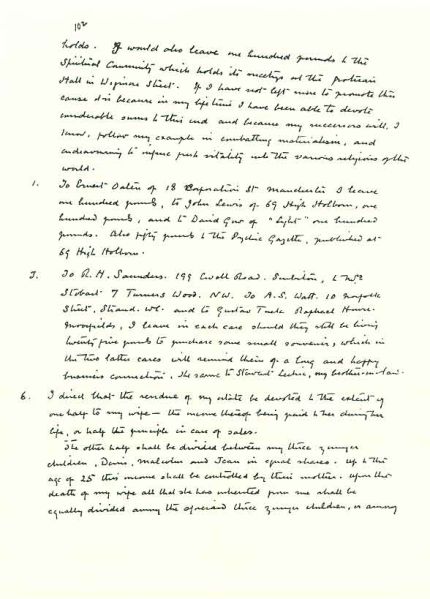 102
holds. I would also leave one hundred pounds to the
Spiritual Community which holds its meetings at the
Hall in Wigmore Street. If I have not left more to promote this
cause it is because in my life time I have been able to devote
considerable sums to this end and because my successors will, I
know, follow my example in combatting materialism, and
endeavouring to infuse fresh vitality into the various religions of the
world.
1. To Ernest Oaten of 18 Corporation St Manchester I leave
one hundred pounds, to John Lewis of 69 High Holborn, one
hundred pounds, and to David Gow of "Light" one hundred
pounds. Also fifty pounds to the Psychic Gazette, published at
69 High Holborn.
To R. H. Saunders. 199 Road. Surbiton, to Mrs
Stobart 7 Turners Wood. N.W. To A. S. Watt. 10 Norfolk
Street, Strand. W.C. and to Gustav Tuck Raphael House.
Moorfields, I leave in each case should they still be living
twenty five pounds to purchase some small souvenir, which in
the two latter cases will remind them of a long and happy
business connection. The same to Stewart Leckie, my brother-in-law.
6. I direct that the residue of my estate be devoted to the extent of
one half to my wife — the income thereof being paid to her during her
life, or half the principle in case of sales.
The other half shall be divided between my three younger
children, Denis, Malcolm and Jean in equal shares. Up to the
age of 25 this income shall be controlled by their mother. Upon the
death of my wife all that she has inherited from me shall be
equally divided among the aforesaid three younger children, or among